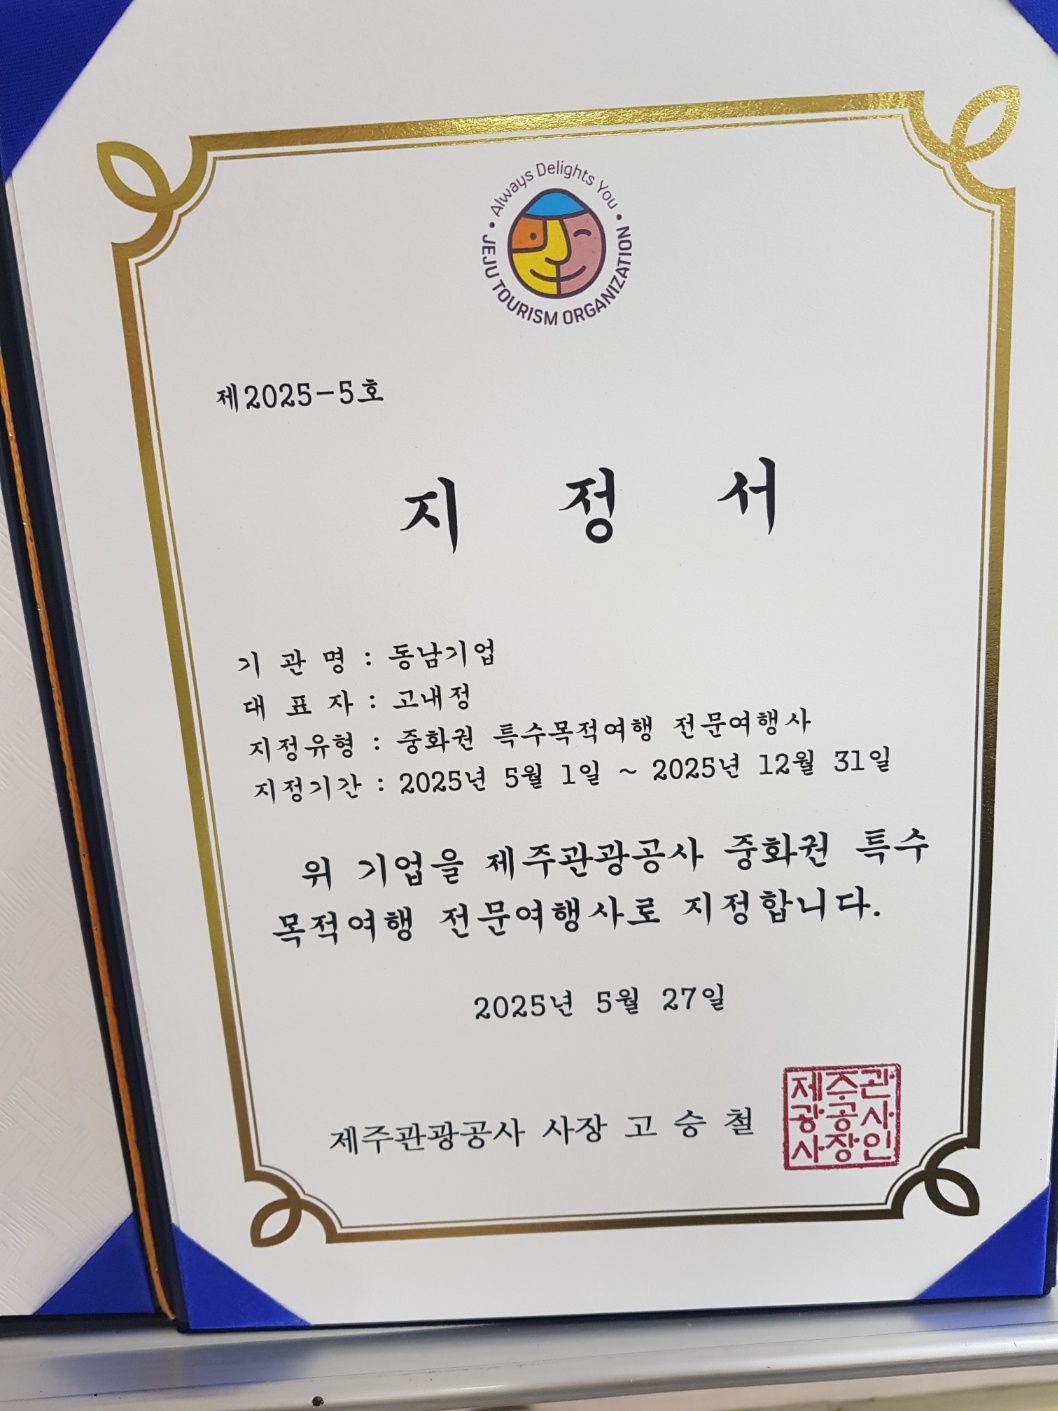 Always Delights You
JEJU TOURISM ORGANIZATION
제2025-5호
지 정 서
기 관 명 : 동남기업
대 표 자 : 고내정
지정유형 : 중화권 특수목적여행 전문여행사
지정기간 : 2025년 5월 1일 ~ 2025년 12월 31일
위 기업을 제주관광공사 중화권 특수
목적여행 전문여행사로 지정합니다.
2025년 5월 27일
제주관광공사 사장 고 승 철
제주관
광공사
사장인